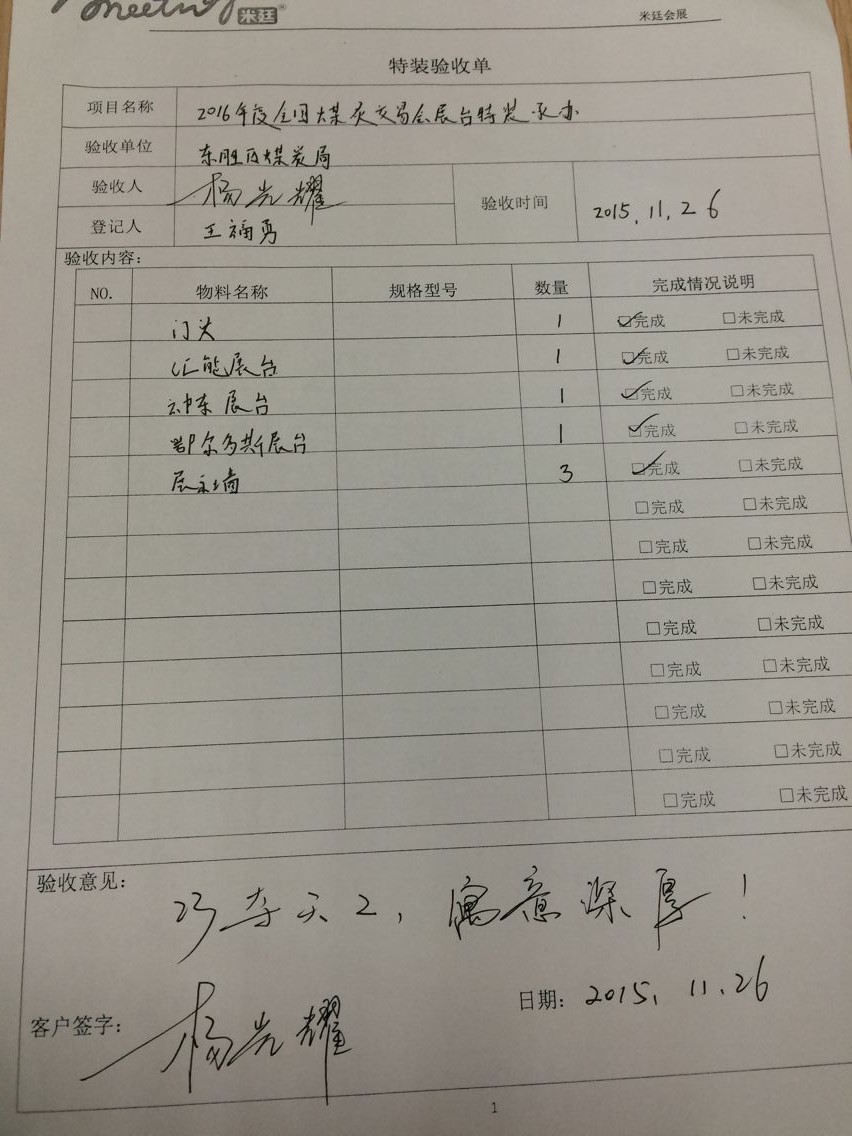 meeting 米廷®
米廷会展
特装验收单
项目名称 2016年度全国煤炭交易会展台特装承办
验收单位 东胜区煤炭局
验收人 杨光耀 验收时间 2015.11.26
登记人 王福勇
验收内容:
NO. 物料名称 规格型号 数量 完成情况说明
门头 1 ☑完成 □未完成
汇能展台 1 ☑完成 □未完成
神东展台 1 ☑完成 □未完成
鄂尔多斯展台 1 ☑完成 □未完成
展示墙 3 ☑完成 □未完成
□完成 □未完成
□完成 □未完成
□完成 □未完成
□完成 □未完成
□完成 □未完成
□完成 □未完成
□完成 □未完成
□完成 □未完成
验收意见: 巧夺天工,寓意深厚!
日期: 2015.11.26
客户签字: 杨光耀
1